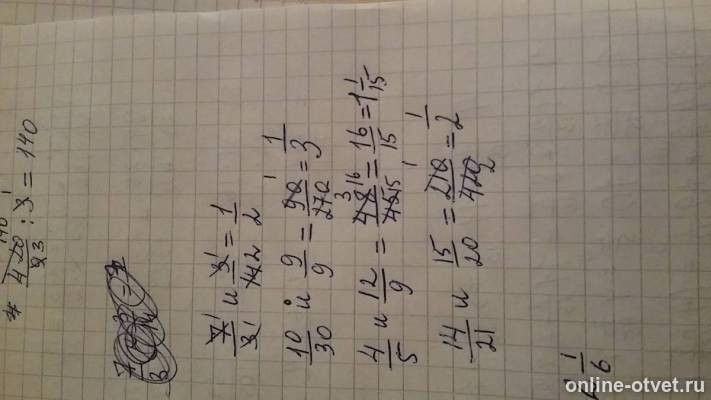 420/3 : 3 = 140
7/3 и 3/14 = 1/2
10/30 и 9/9 = 90/270 = 1/3
4/5 и 12/9 = 48/45 = 16/15 = 1 1/15
14/21 и 15/20 = 210/420 = 1/2
1/6
online-otvet.ru